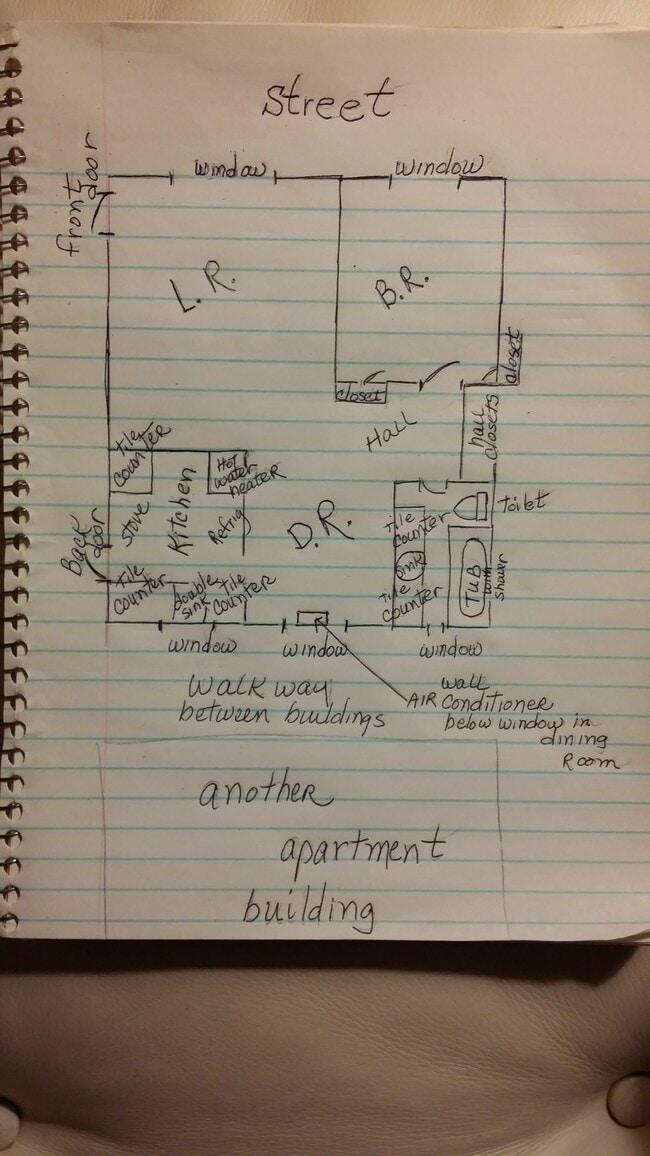 Street
window
window
front
door
L.R.
B.R.
closet
closet
Hall
hall
closets
Tile
counter
Hot
water
heater
Kitchen
Stove
Refrig
D.R.
Tile
counter
Sink
Tile
counter
Toilet
TUB
with
shower
Back
door
Tile
counter
double
sink
Tile
counter
window
window
window
Walkway
between buildings
Wall
AIR Conditioner
below window in
dining
Room
another
apartment
building